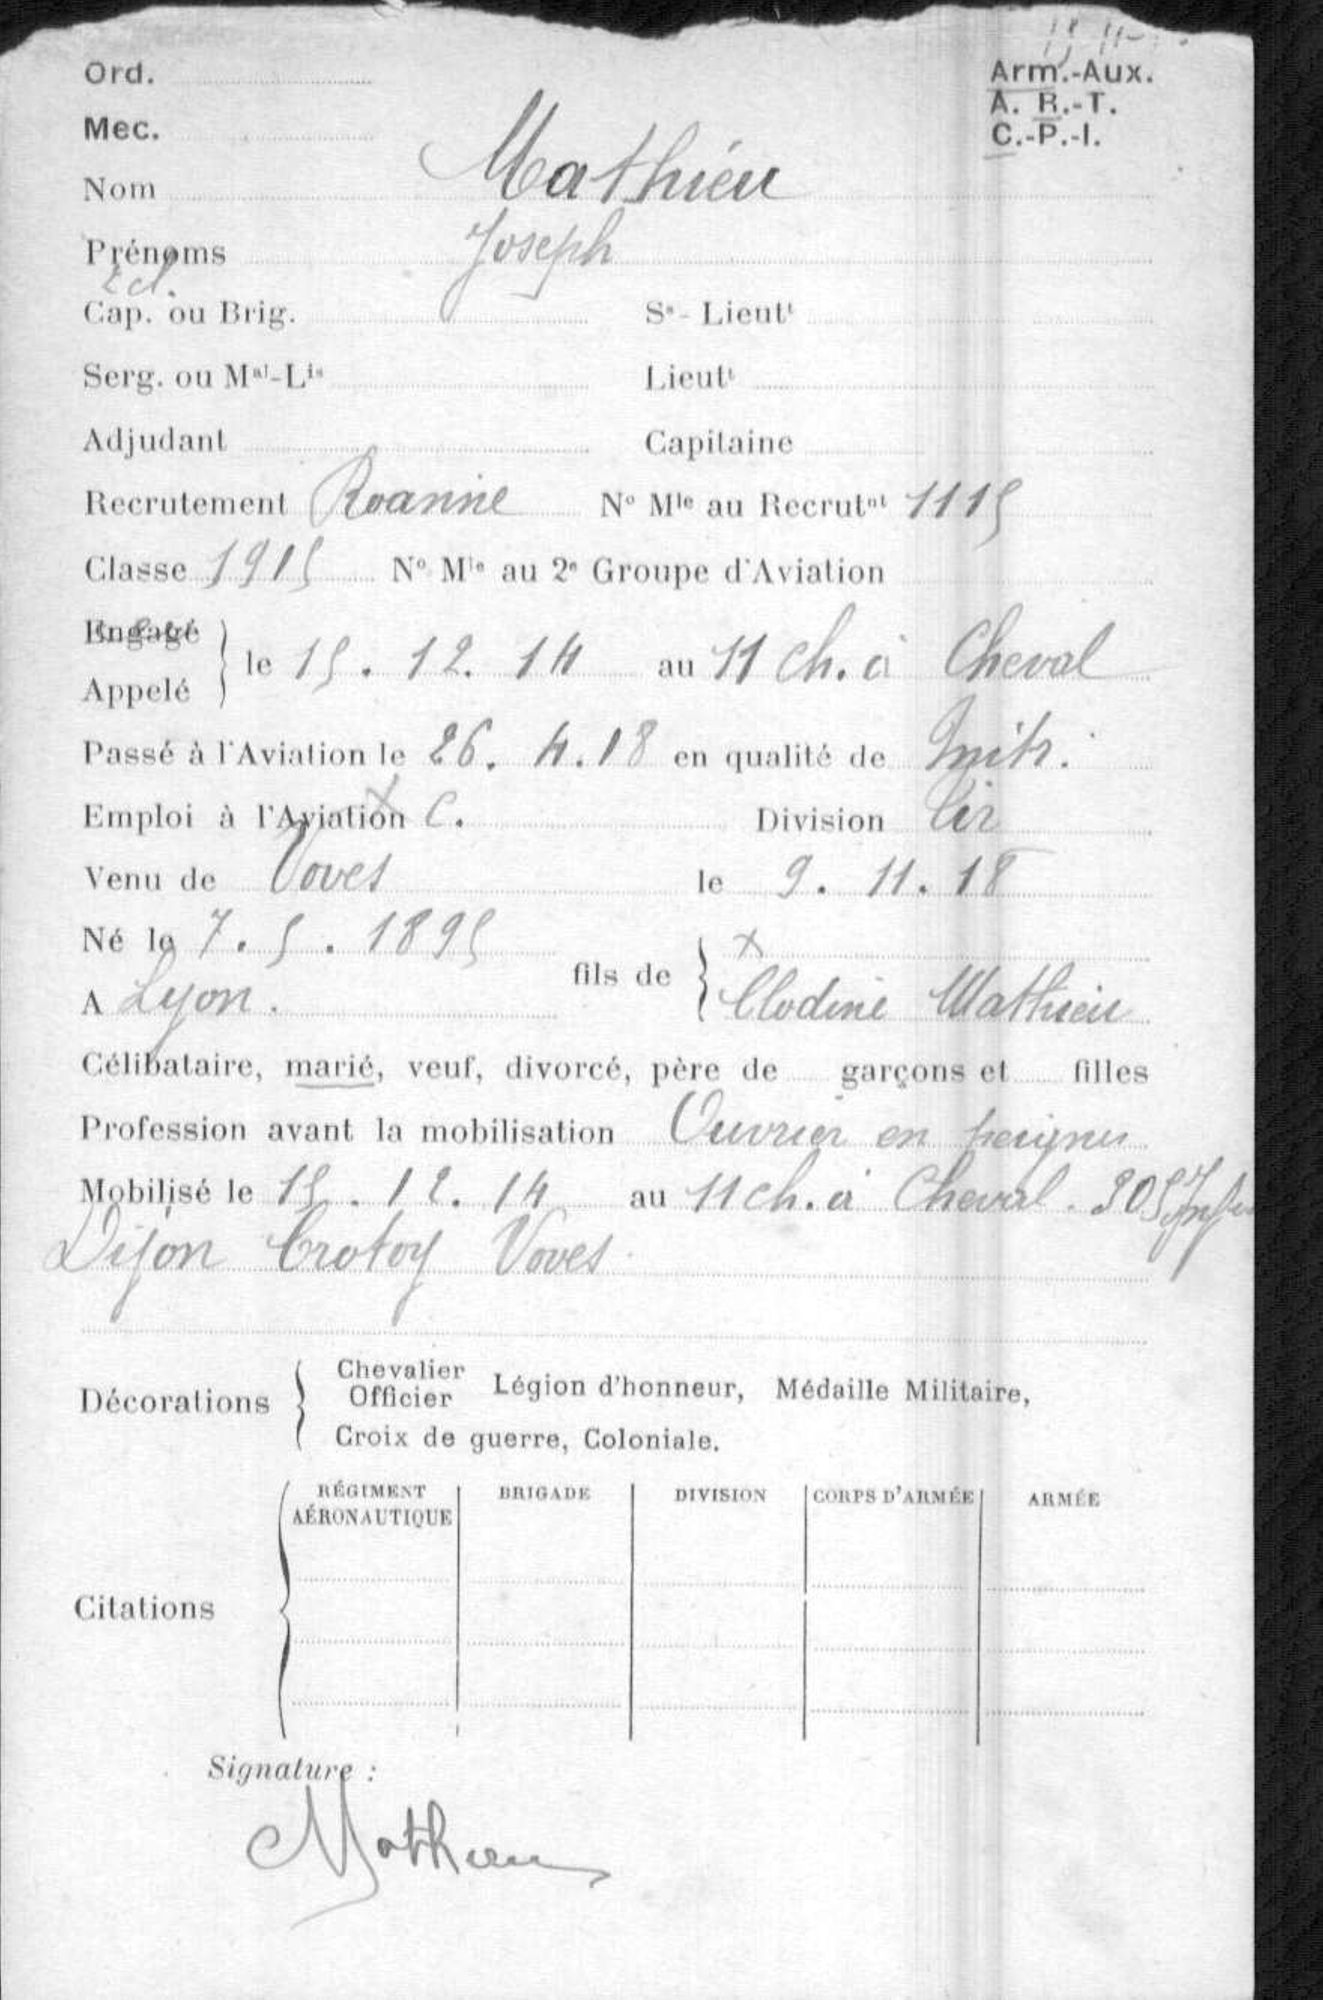 Ord.
Arm.-Aux.
Mec.
A. R.-T.
C.-P.-I.
Nom Mathieu
Prénoms Joseph
Cap. ou Brig. Sˢ-Lieutᵗ
Serg. ou Mᵃˡ-Lⁱˢ Lieutᵗ
Adjudant Capitaine
Recrutement Roanne Nº Mˡᵉ au Recrutⁿᵗ 1115
Classe 1915 Nº Mˡᵉ au 2ᵉ Groupe d'Aviation
Engagé
Appelé
le 15. 12. 14 au 11 ch. à Cheval
Passé à l'Aviation le 26. 4. 18 en qualité de Mitr.
Emploi à l'Aviation C. Division Tir
Venu de Voves le 9. 11. 18
Né le 7. 5. 1895
A Lyon.
fils de x
Clodine Mathieu
Célibataire, marié, veuf, divorcé, père de garçons et filles
Profession avant la mobilisation Ouvrier en peignes
Mobilisé le 15. 12. 14 au 11 ch. à Cheval.
Dijon Crotoy Voves
Décorations
Chevalier
Officier
Légion d'honneur, Médaille Militaire,
Croix de guerre, Coloniale.
Citations
RÉGIMENT AÉRONAUTIQUE BRIGADE DIVISION CORPS D'ARMÉE ARMÉE
Signature :
Mathieu